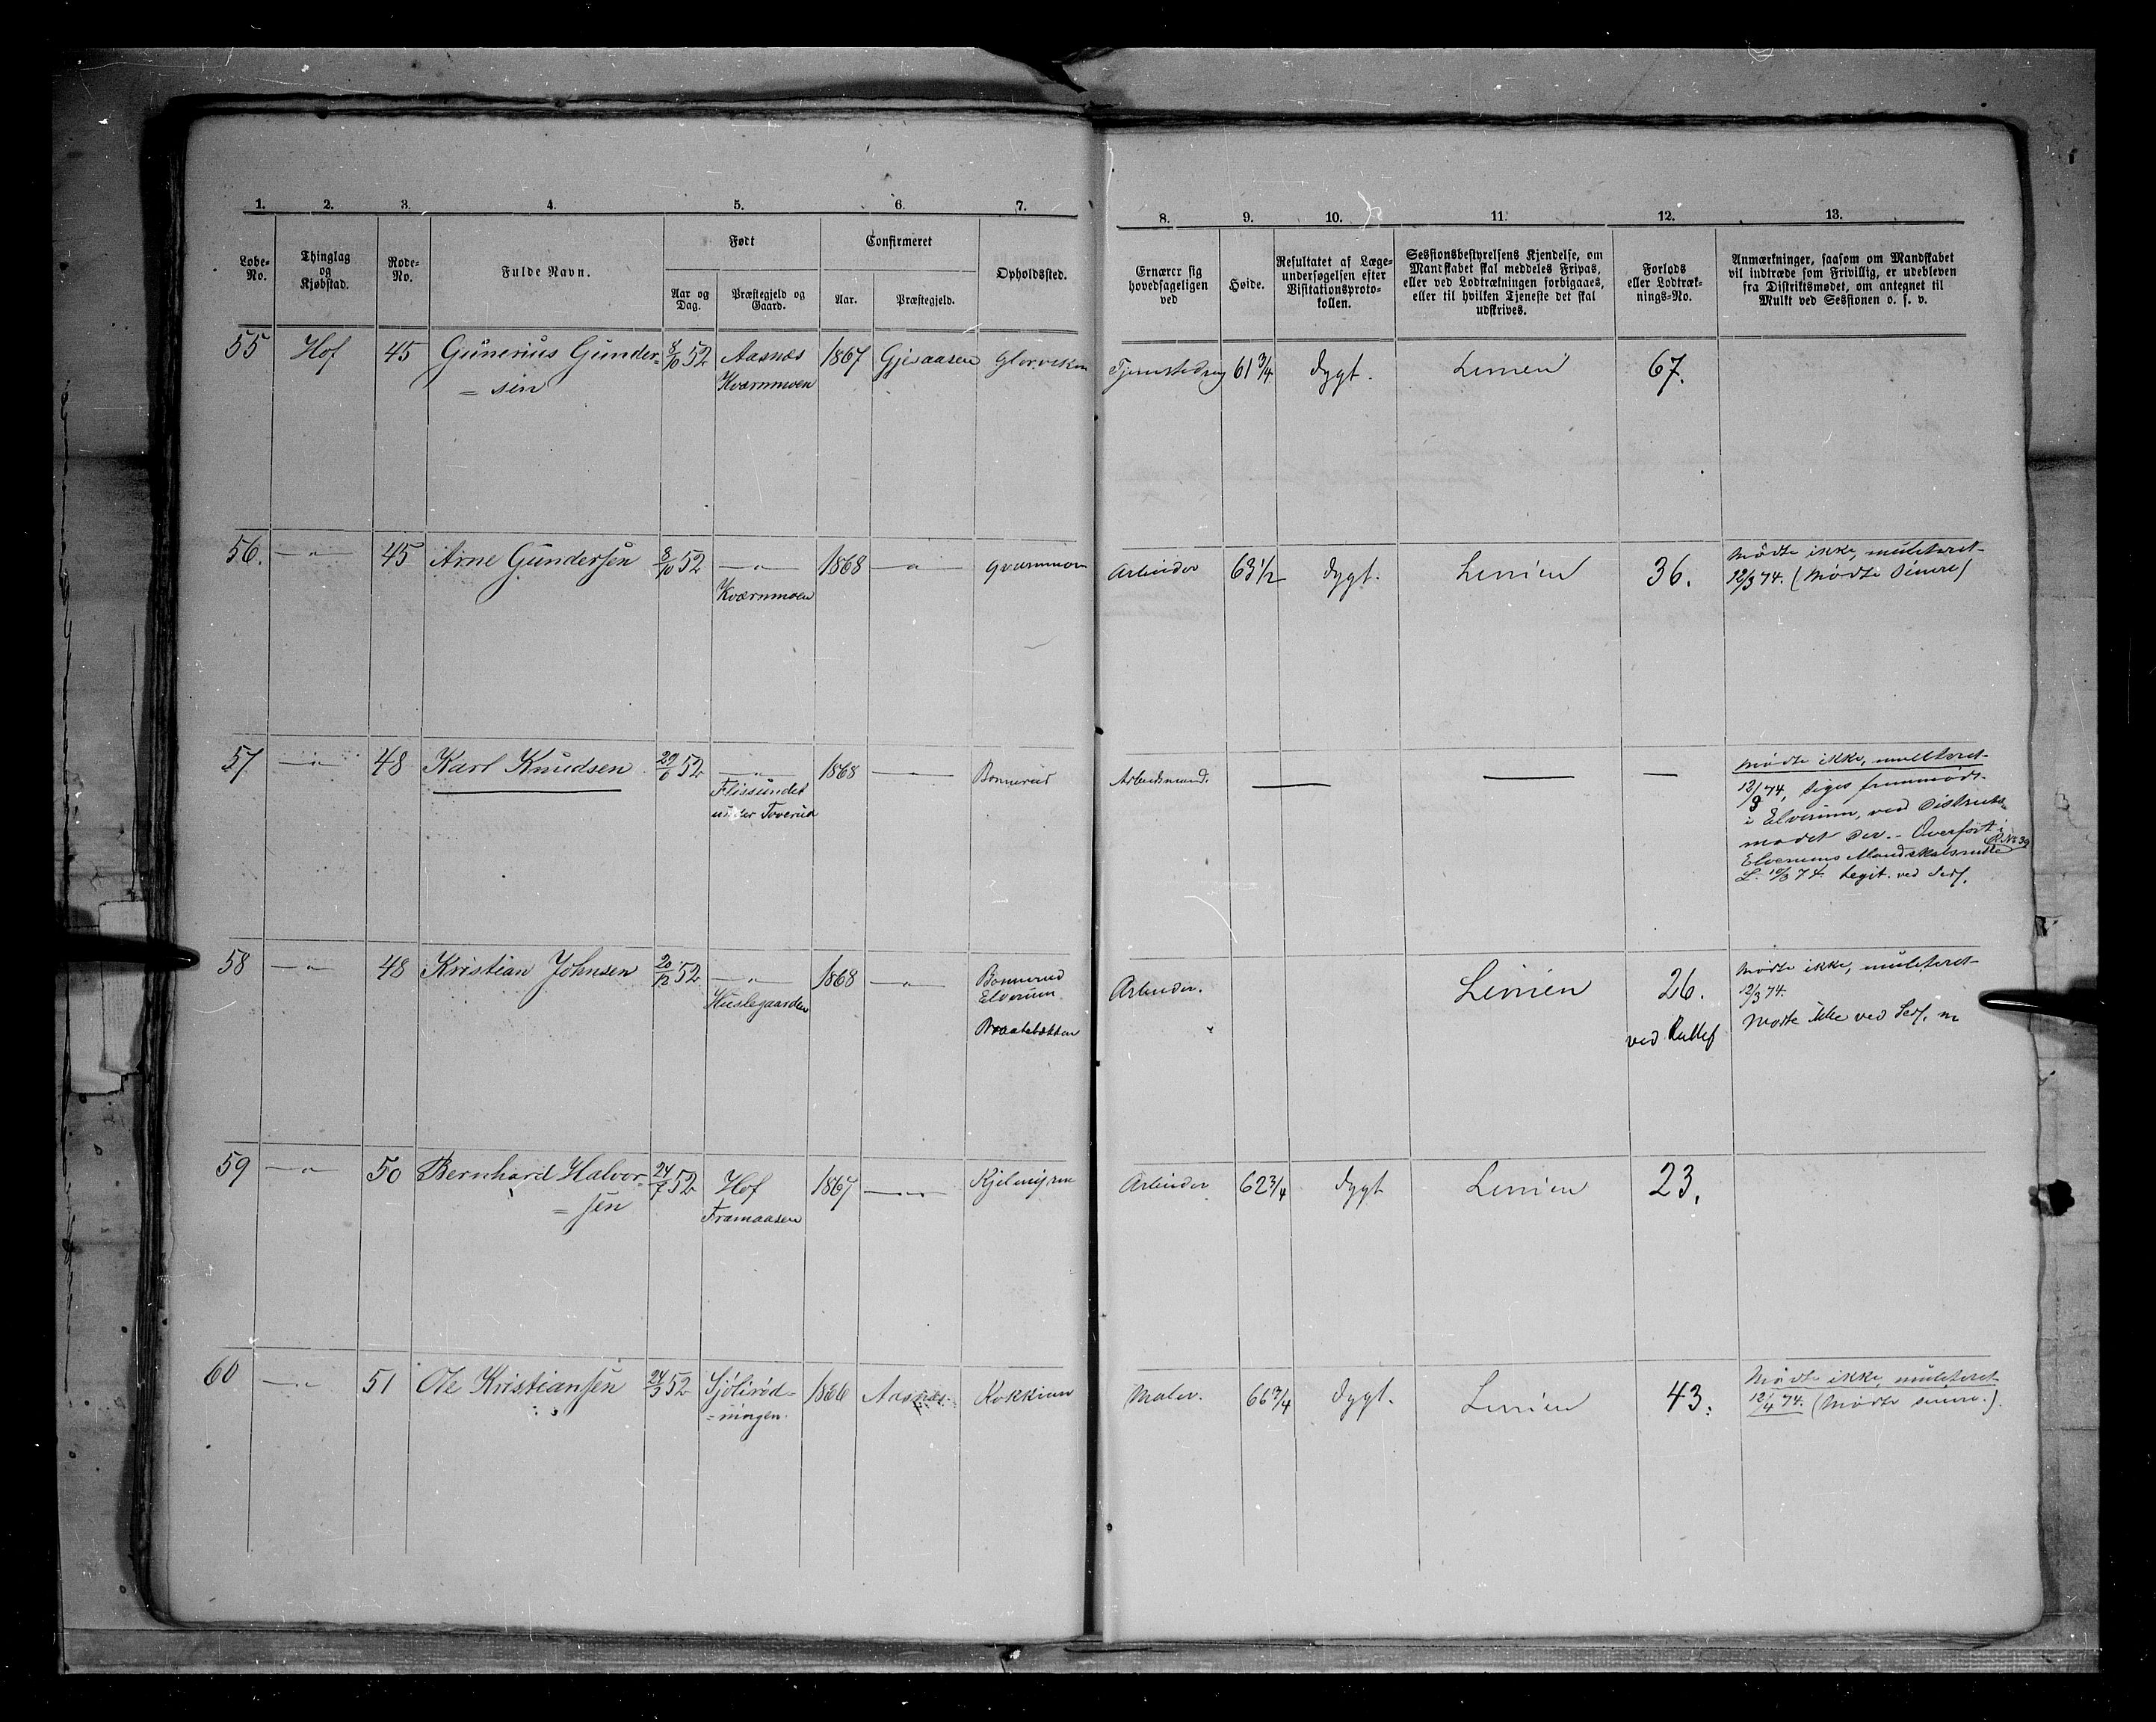 1. 2. 3. 4. 5. 6. 7.
Løbe-No. Thinglag og Kjøbstad. Rode-No. Fulde Navn. Født Confirmeret Opholdssted.
Aar og Dag. Præstegjeld og Gaard. Aar. Præstegjeld.
8. 9. 10. 11. 12. 13.
Ernærer sig hovedsageligen ved
Høide.
Resultatet af Læge-
undersøgelsen efter
Visitationsproto-
kollen.
Sessionsbestyrelsens Kjendelse, om
Mandskabet skal meddeles Fripas,
eller ved Lodtrækningen forbigaaes,
eller til hvilken Tjeneste det skal
udskrives.
Forlods
eller Lodtræk-
nings-No.
Anmærkninger, saasom om Mandskabet
vil indtræde som Frivillig, er udebleven
fra Distriktsmødet, om antegnet til
Mulkt ved Sessionen o. s. v.
55 Hof 45 Gunerius Gunder- 8/10 52 Aasnæs 1867 Gjesaasen 61 3/4 dygt. Linien 67.
= sen Kværnmoen
56. —"— 45 Arne Gundersen 8/10 52 —"— 1868 —"— Arbeider 63 1/2 dygt. Linien 36. Mødte ikke, mulcteret
Kværnmoen 12/3 74. (Mødte senere)
57 —"— 48 Karl Knudsen 29/6 52 —"— 1868 —— Bonnerud Arbeidsmand. — — — Mødte ikke, mulcteret
Flissundet 12/3 74, siges fremmødt
under Toverud i Elverum, ved Distrikts-
mødet der. - Overført i
Elverums Mandskabsrulle R. No 39
L. 10/3 74. Legit. ved Sess.
58 —"— 48 Kristian Johnsen 20/12 52 —"— 1868 —"— Bonnerud Arbeider. Linien 26. Mødte ikke, mulcteret
Huslegaarden Elverum 12/3 74.
Braatebækken ved Mødte ikke ved Sess.
59 —"— 50 Bernhard Halvor- 24/7 52 Hof 1867 —"— Arbeider 62 3/4 dygt Linien 23.
= sen Framaasen
60 —"— 51 Ole Kristiansen 24/3 52 Sjøliröd- 1866 Aasnæs Maler. 66 3/4 dygt. Linien 43. Mødte ikke, mulcteret
= ningen. 12/4 74. (Mødte senere.)